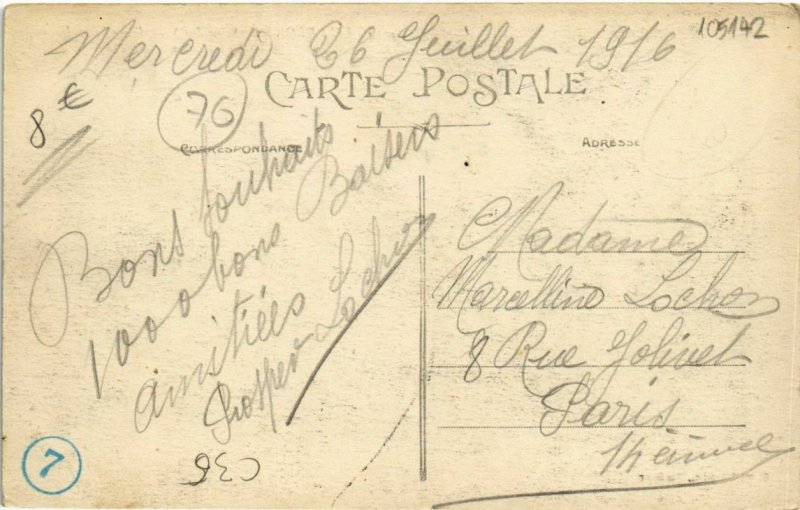 105142
Mercredi 26 Juillet 1916
CARTE POSTALE
76
8 €
CORRESPONDANCE
ADRESSE
Bons souhaits
1000 bons Baisers
amitiées
Prosper Lochon
Madame
Marcelline Lochon
8 Rue Jolivet
Paris
7